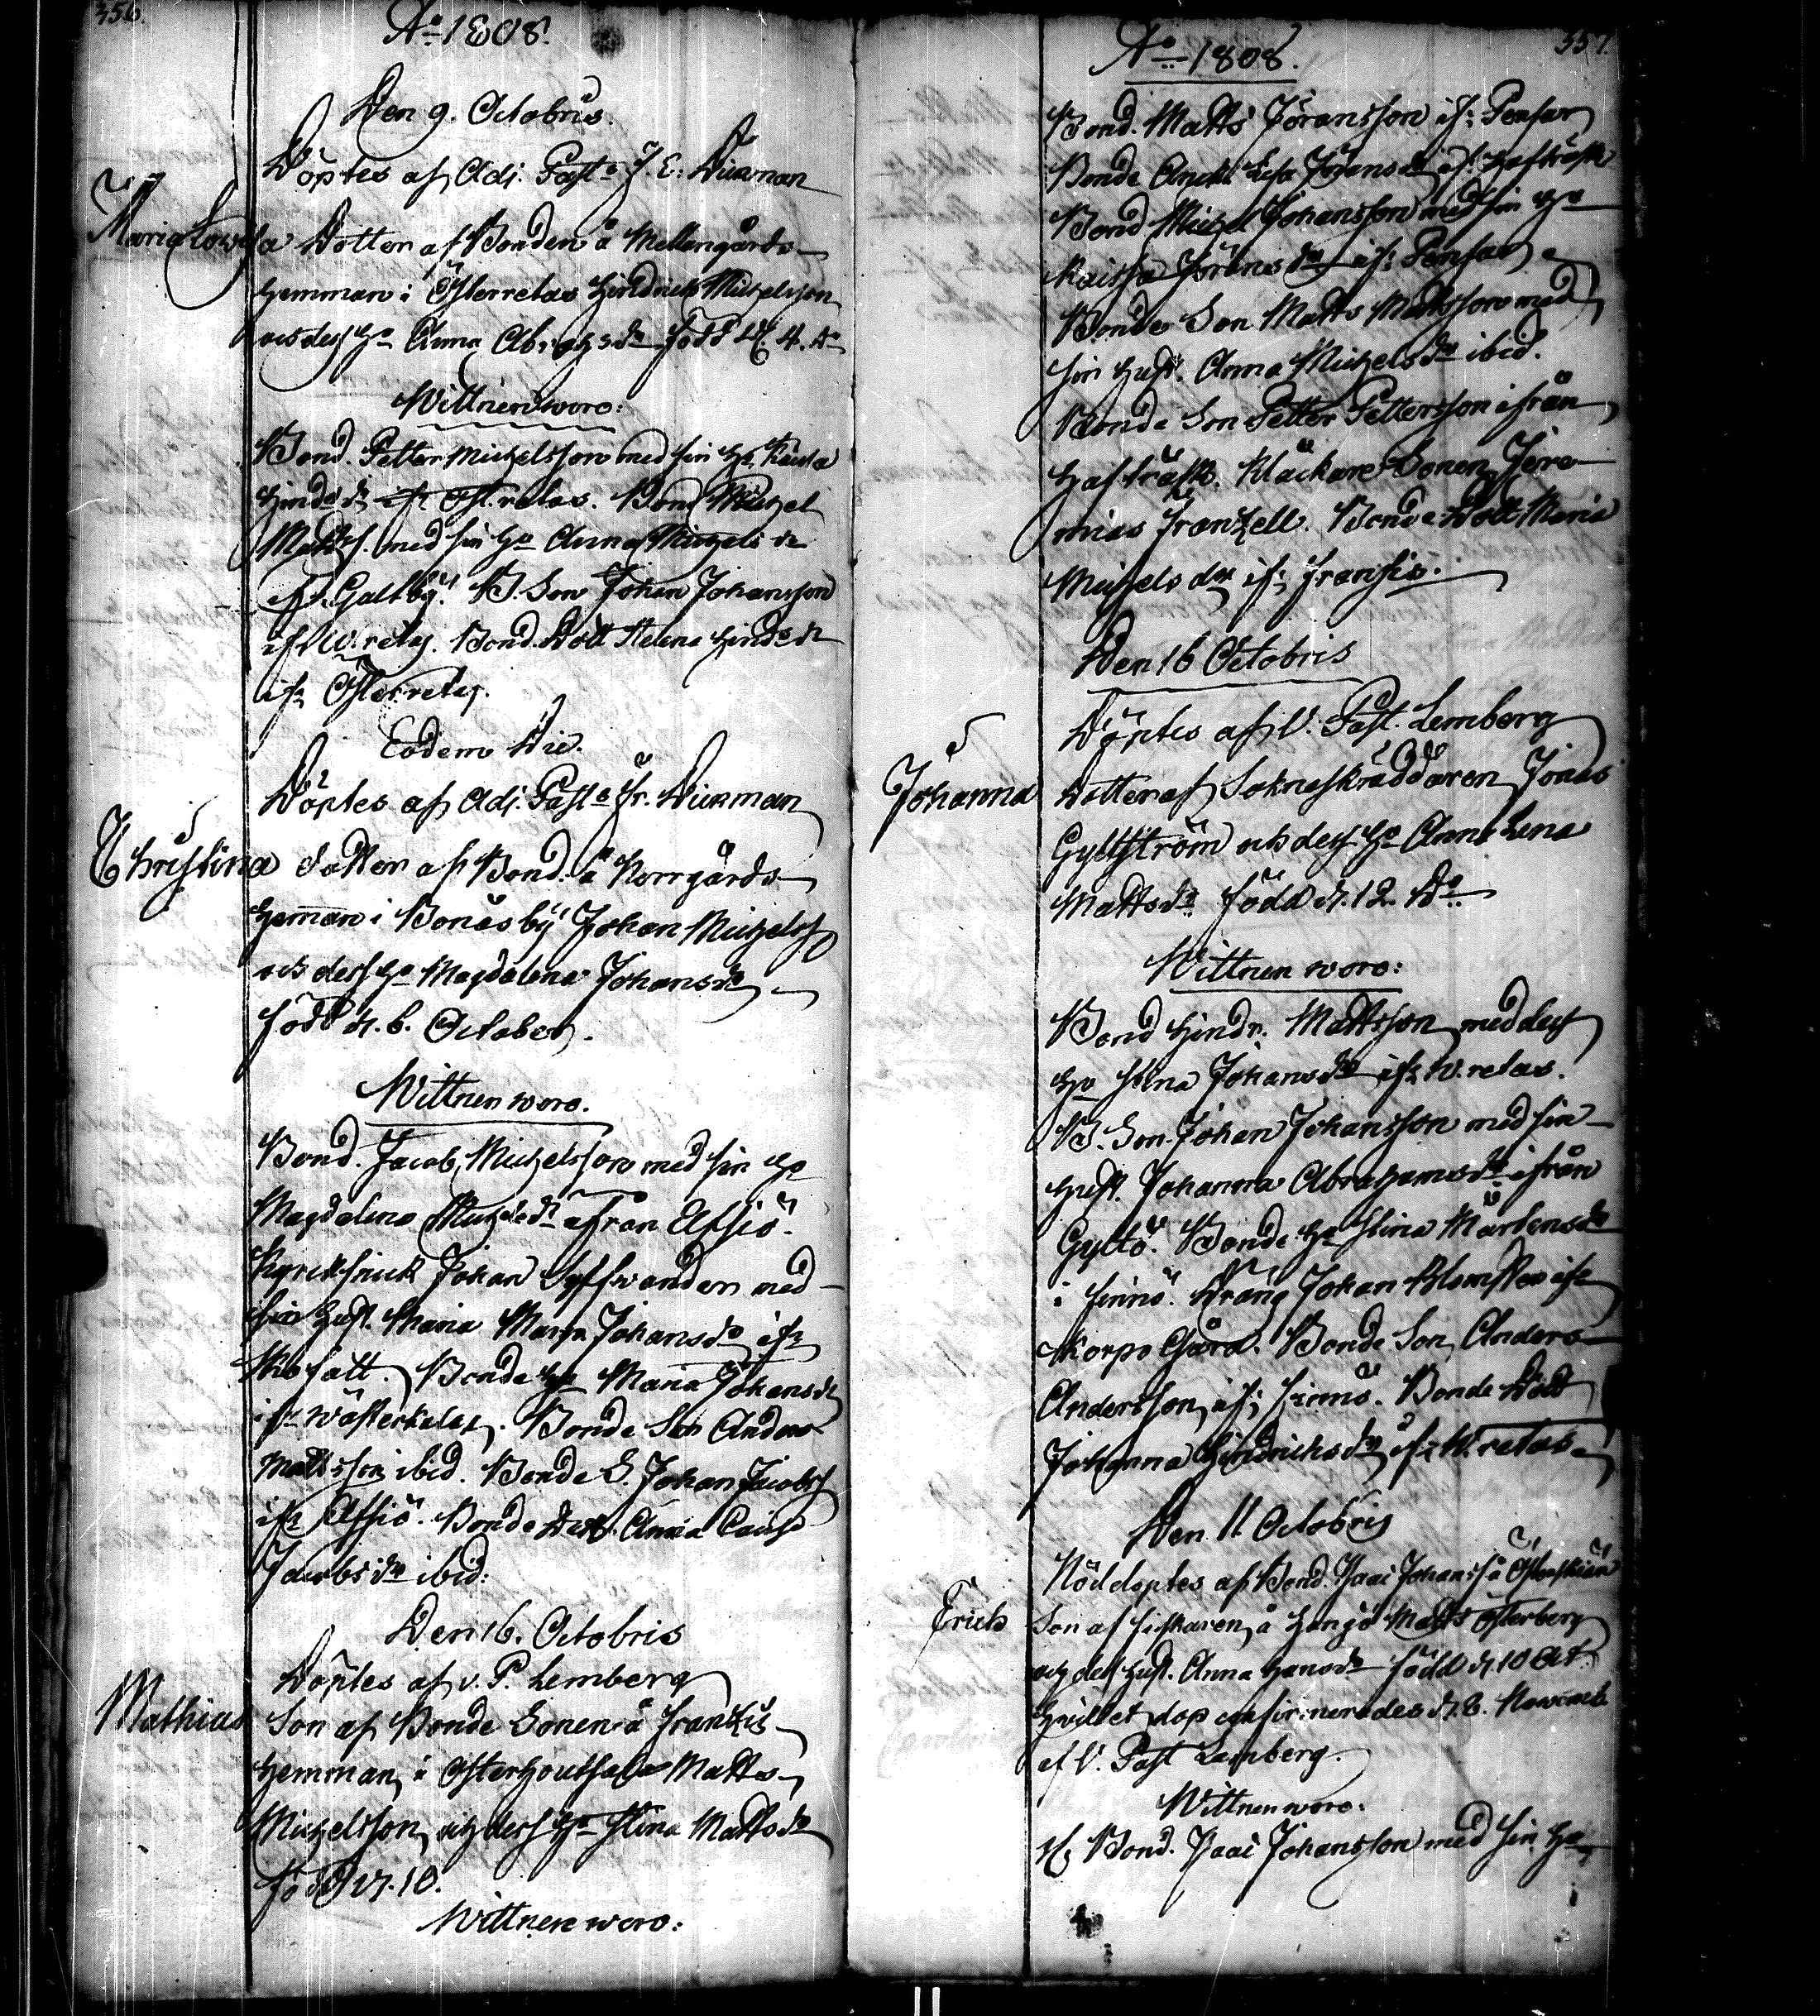 356.
Ao 1808.
Den 9. Octobris.
Döptes af Adj. Past. J. E. Dickman
Maria Lowisa Dotter af Bonden å Mellengårds
Hemman i Österretas Hindrich Michelsson
och dess Ho Anna Abrahsdr född d. 4. do
Wittnen woro:
Bond. Petter Michelsson med sin Ho
Hindsdr ifr Öst. retas. Bond Michel
Matts. med sin Ho Anna Michels dr
ifr. Galtby. B. Son Johan Johansson
ifr W. retas. Bond. Dott Helena Hindsdr
ifr Österretas.
Eodem Die.
Döptes af Adj. Past. Hr. Dickman
Christina dotter af Bond. å Norrgårds
Hemman i Bonäs by Johan Michelss
och dess Ho Magdalena Johansdr
född d. 6. October.
Wittnen woro.
Bond. Jacob Michelsson med sin Ho
Magdalena Michelsdr ifrån Elfsiö.
Johan med
sin Hust. Maria Johansdr ifr
Bonde Ho Maria Johansdr
ifr Wästerkalax. Bonde Son Anders
Mattsson ibid. Bonde S. Johan Jacobss
ifr Elfsiö. Bonde Dott. Anna Caisa
Jacobsdr ibid:
Den 16. Octobris
Döptes af v. P. Lemberg
Mathias Son af Bonde Sonen å Frantzis
Hemman i Österhoutskala Matts
Michelsson och dess Ho Stina Mattsdr
född d. 10.
Wittnen woro:
357.
Ao 1808.
Bond. Matts Jöransson ifr Pensar
Bonde Jöransdr ifr Hafträsk
Bond Michel Johansson med sin Ho
Kaissa Jöransdr ifr Pensar
Bonde Son Matts Mattsson med
sin Hust. Anna Michelsdr ibid.
Bonde Son Petter Pettersson ifrån
Hafträsk. Kläckare Sonen Jere-
mias Frantzell. Bonde Dott Maria
Michelsdr ifr Fransis.
Den 16 Octobris
Döptes af V. Past. Lemberg
Johanna Dotter af Sokneskräddaren Jonas
Gyllström och dess Ho Anna Lena
Mattsdr född d. 12. do
Wittnen woro:
Bond Hindr. Mattsson med dess
Ho Stina Johansdr ifr W. retas.
B. Son Johan Johansson med sin
Hust. Johanna Abrahamsdr ifrån
Gyltö. Bonde Ho Stina Mårtensdr
i Finnö. Dräng Johan Blomster ifr
Korpo Gård. Bonde Son Anders
Andersson ifr Finnö. Bonde Dott
Johanna Hindrichsdr ifr W. retas.
Den 11 Octobris
Nöddöptes af Bond. Isac Johanss å Österskiär
Erich Son af fiskaren å Matts Österberg
och dess Hust. Anna Hansdr född d. 10 Oct
Hvilcket dop confirmerades d. 8. Novemb.
af V. Past Lemberg.
Wittnen woro:
Bond. Isac Johansson med sin Ho